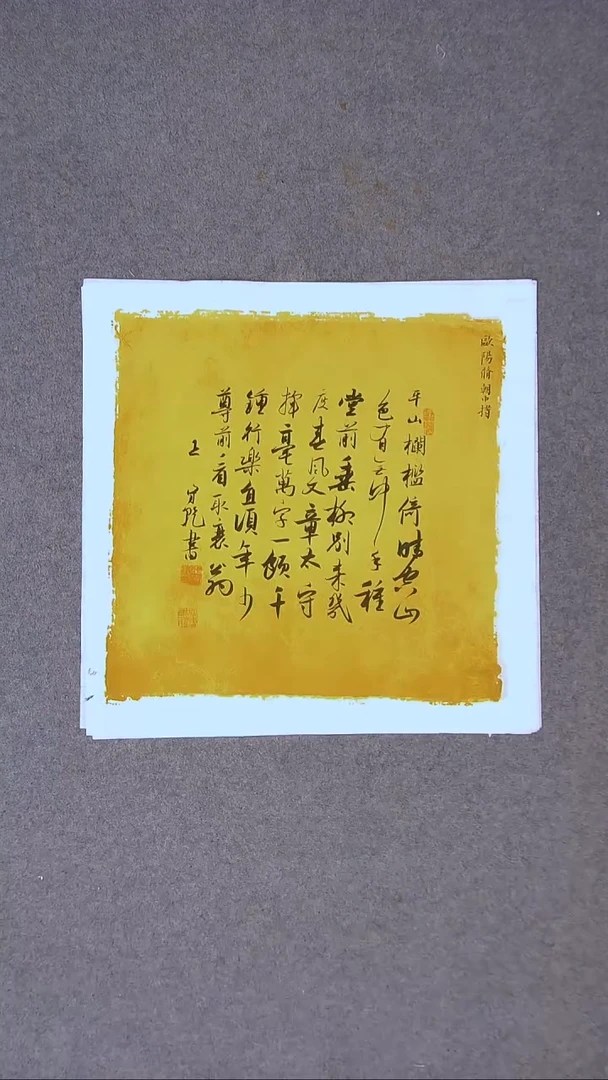 歐陽脩朝中措
平山欄檻倚晴空山
色有無中手種
堂前垂柳別來幾
度春風文章太守
揮毫萬字一飲千
鍾行樂直須年少
尊前看取衰翁
書